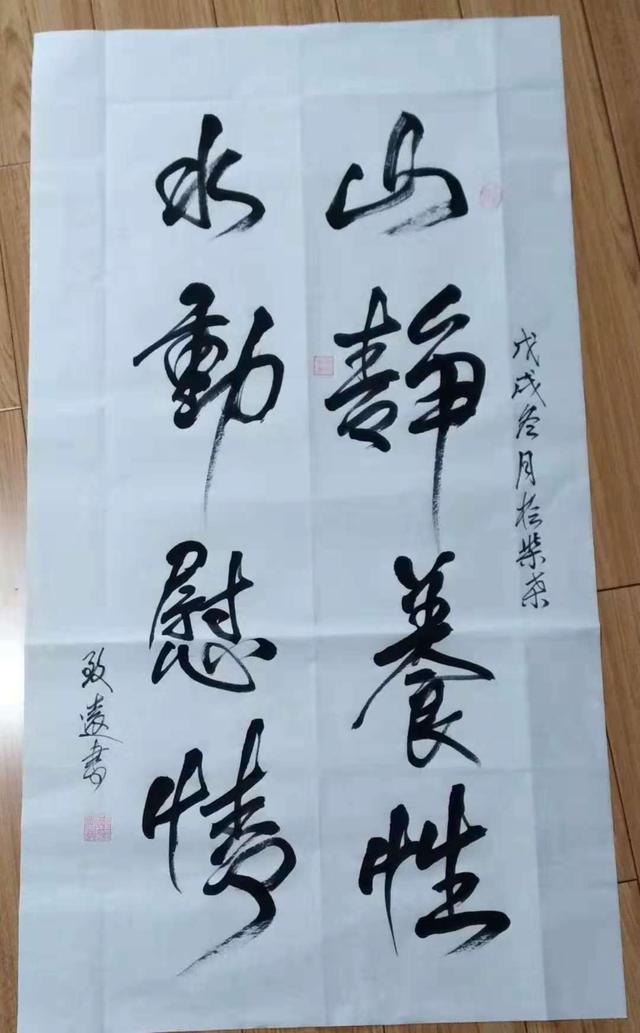 戊戌冬月於柴桑
山静養性
水動慰情
致遠書